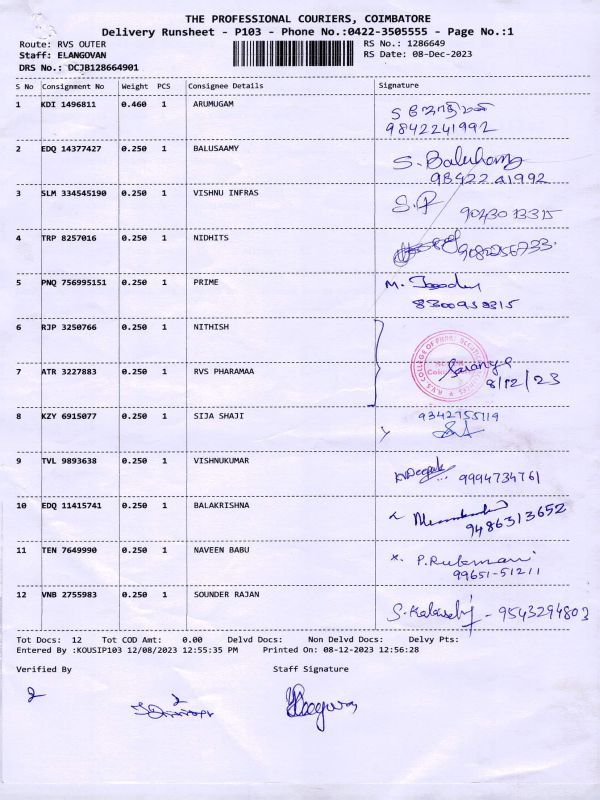 THE PROFESSIONAL COURIERS, COIMBATORE
Delivery Runsheet - P103 - Phone No.:0422-3505555 - Page No.:1
Route: RVS OUTER
RS No.: 1286649
Staff: ELANGOVAN
RS Date: 08-Dec-2023
DRS No.: DCJB128664901
S No Consignment No Weight PCS Consignee Details Signature
1 KDI 1496811 0.460 1 ARUMUGAM
9842241992
2 EDQ 14377427 0.250 1 BALUSAAMY S.
98422 41992
3 SLM 334545190 0.250 1 VISHNU INFRAS
4 TRP 8257016 0.250 1 NIDHITS
5 PNQ 756995151 0.250 1 PRIME M.
6 RJP 3250766 0.250 1 NITHISH
7 ATR 3227883 0.250 1 RVS PHARAMAA Saranya
8/12/23
8 KZY 6915077 0.250 1 SIJA SHAJI 9342755119
9 TVL 9893638 0.250 1 VISHNUKUMAR 9994734761
10 EDQ 11415741 0.250 1 BALAKRISHNA
9486313652
11 TEN 7649990 0.250 1 NAVEEN BABU P. Rukmani
99651-51211
12 VNB 2755983 0.250 1 SOUNDER RAJAN S. - 9543294803
Tot Docs: 12 Tot COD Amt: 0.00 Delvd Docs: Non Delvd Docs: Delvy Pts:
Entered By :KOUSIP103 12/08/2023 12:55:35 PM Printed On: 08-12-2023 12:56:28
Verified By Staff Signature